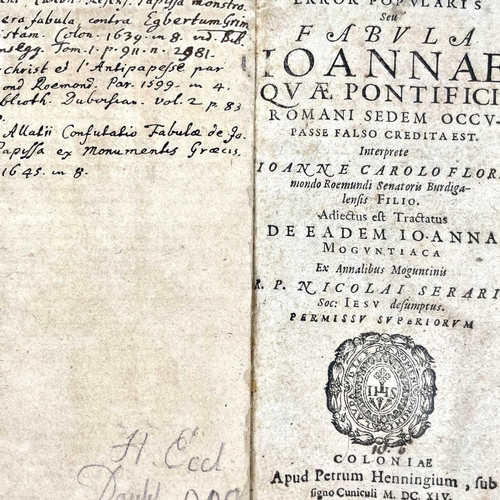 era fabula, contra Egbertum Grim
istam. Colon. 1639. in 8. vid. B.B.
Tom. I. p. 911. n. 2981.
christ et l'Antipapesse par
ond Roemond. Par. 1599. in 4.
iblioth. Duboisian. vol. 2. p. 83
Allatii Confutatio Fabulae de Jo.
Papissa ex Monumentis Græcis.
1645. in 8.
H. Eccl
ERROR POPVLARIS
Seu
FABVLA
IOANNAE
QVÆ PONTIFICI
ROMANI SEDEM OCCV-
PASSE FALSO CREDITA EST.
Interprete
IOANNE CAROLO FLOR
mondo Roemundi Senatoris Burdiga-
lensis FILIO.
Adiectus est Tractatus
DE EADEM IOANNA
MOGVNTIACA
Ex Annalibus Moguntinis
R. P. NICOLAI SERARI
Soc: IESV desumptus.
PERMISSV SVPERIORVM
IHS
COLONIAE
Apud Petrum Henningium, sub
signo Cuniculi M. DC. XIV.